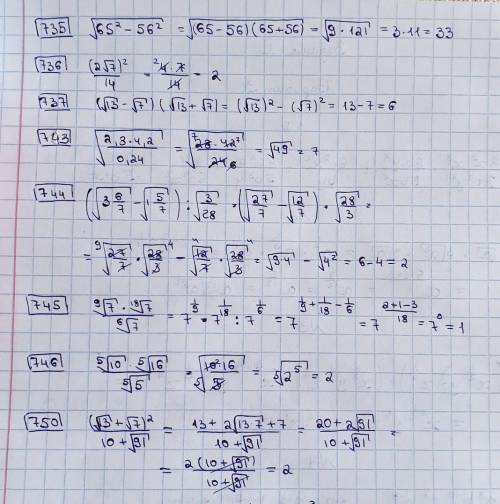 735 √(65² − 56²) = √((65−56)(65+56)) = √(9·121) = 3·11 = 33
736 (2√7)²/14 = ²4·7/14 = 2
737 (√13 − √7)(√13 + √7) = (√13)² − (√7)² = 13−7 = 6
743 √(2,3·4,2/0,24) = √(⁷28·42⁷/24 6) = √49 = 7
744 (√(3 6/7) − √(1 5/7)) : √(3/28) = (√(27/7) − √(12/7)) · √(28/3) =
= √(⁹27/7 · 28⁴/3) − √(⁴12/7 · 28⁴/3) = √(9·4) − √(4²) = 6−4 = 2
745 ⁹√7 · ¹⁸√7 / ⁶√7 = 7^(1/9) · 7^(1/18) : 7^(1/6) = 7^(1/9 + 1/18 − 1/6) = 7^((2+1−3)/18) = 7⁰ = 1
746 ⁵√10 · ⁵√16 / ⁵√5 = ⁵√(10²·16/5) = ⁵√(2⁵) = 2
750 (√13 + √7)²/(10+√91) = (13 + 2√(13·7) + 7)/(10+√91) = (20 + 2√91)/(10+√91) =
= 2(10+√91)/(10+√91) = 2